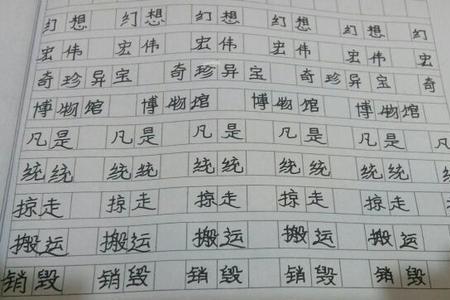 幻想 幻想 幻想 幻想 幻想 幻
宏伟 宏伟 宏伟 宏伟 宏伟 宏
奇珍异宝 奇珍异宝 奇珍异宝 奇
博物馆 博物馆 博物馆 博物馆
凡是 凡是 凡是 凡是 凡是
统统 统统 统统 统统 统统 统
掠走 掠走 掠走 掠走 掠走 掠
搬运 搬运 搬运 搬运 搬运
销毁 销毁 销毁 销毁 销毁